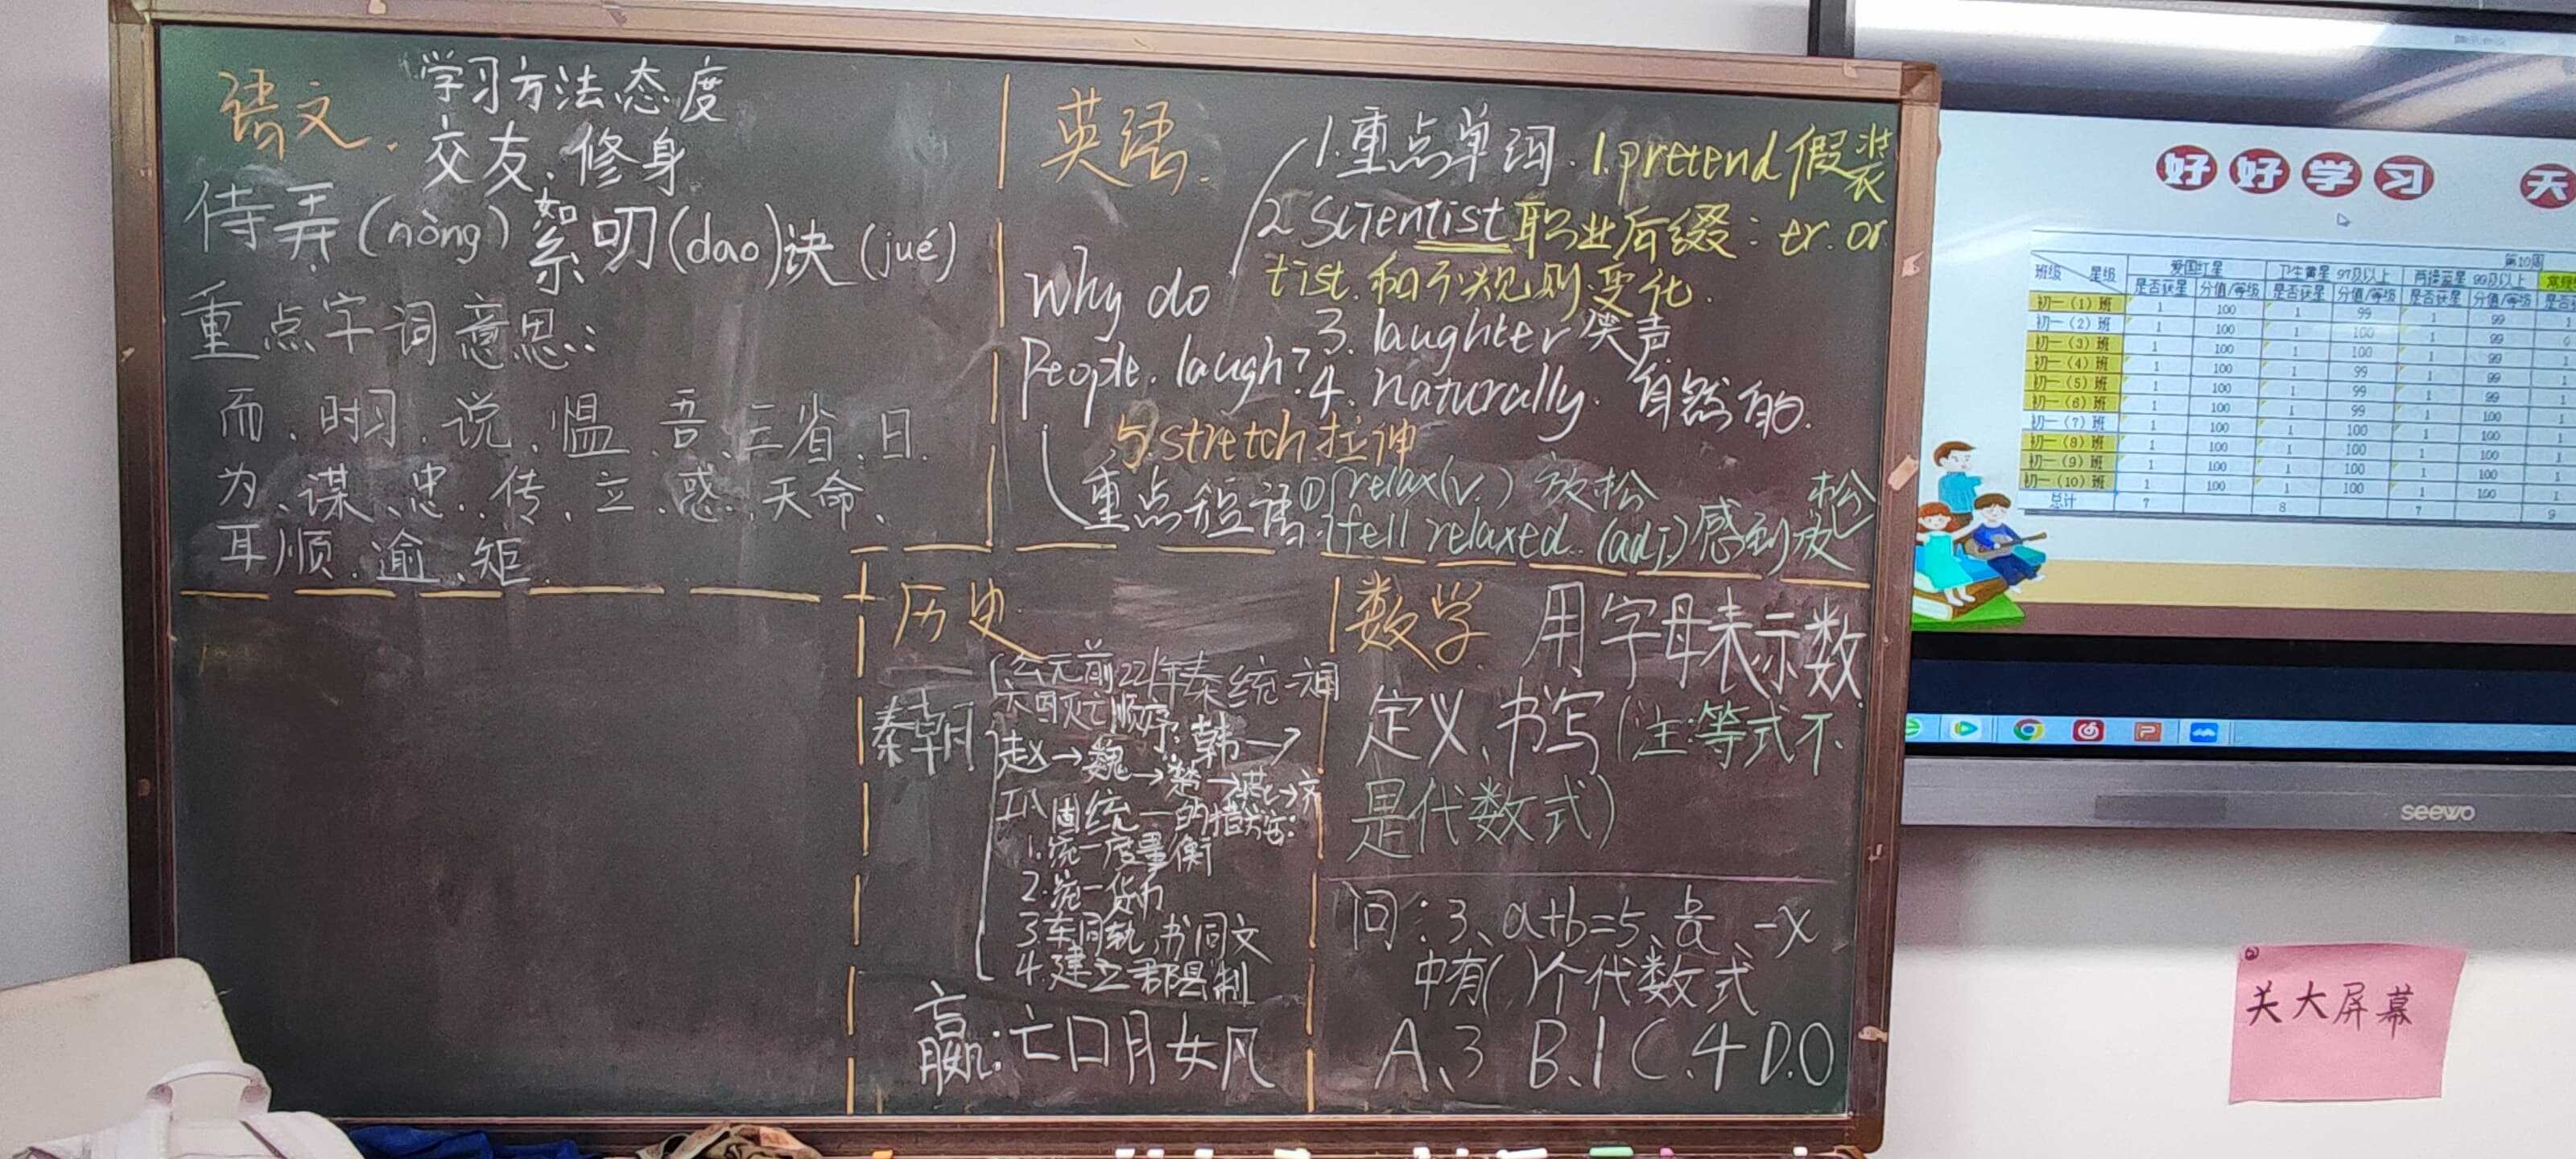 语文.
学习方法态度
交友、修身
侍弄(nòng) 絮叨(dao)诀(jué)
重点字词意思:
而、时习、说、愠、吾、三省、日.
为、谋、忠、传、立、惑、天命、
耳顺、逾、矩.
英语.
1.重点单词. 1.pretend 假装
2 Scientist 职业后缀: er. or
tist. 和不规则变化.
Why do
People. laugh?
3. laughter 笑声
4. naturally. 自然的.
5.stretch 拉伸
重点短语: ① relax(v.) 放松
fell relaxed. (adj.) 感到放松
历史.
秦朝
公元前221年秦统一六国
六国灭亡顺序: 韩→
赵→魏→楚→燕→齐
巩固统一的措施:
1.统一度量衡
2.统一货币
3.车同轨,书同文
4.建立郡县制
赢: 亡口月女凡
数学
用字母表示数
定义、书写(注:等式不
是代数式)
问: 3、a+b=5、b/a、-x
中有( )个代数式
A、3 B、1 C.4 D.0
好好学习 天
第10周
班级 星级 爱国红星 卫生黄星 97及以上 两操蓝星 99及以上
是否获星 分值/等级 是否获星 分值/等级 是否获星 分值/等级
初一(1)班 1 100 1 99 1 99
初一(2)班 1 100 1 100 1 99
初一(3)班 1 100 1 100 1 99
初一(4)班 1 100 1 99 1 99
初一(5)班 1 100 1 99 1 99
初一(6)班 1 100 1 99 1 100
初一(7)班 1 100 1 100 1 100
初一(8)班 1 100 1 100 1 100
初一(9)班 1 100 1 100 1 100
初一(10)班 1 100 1 100 1 100
总计 7 8 7 9
seewo
关大屏幕